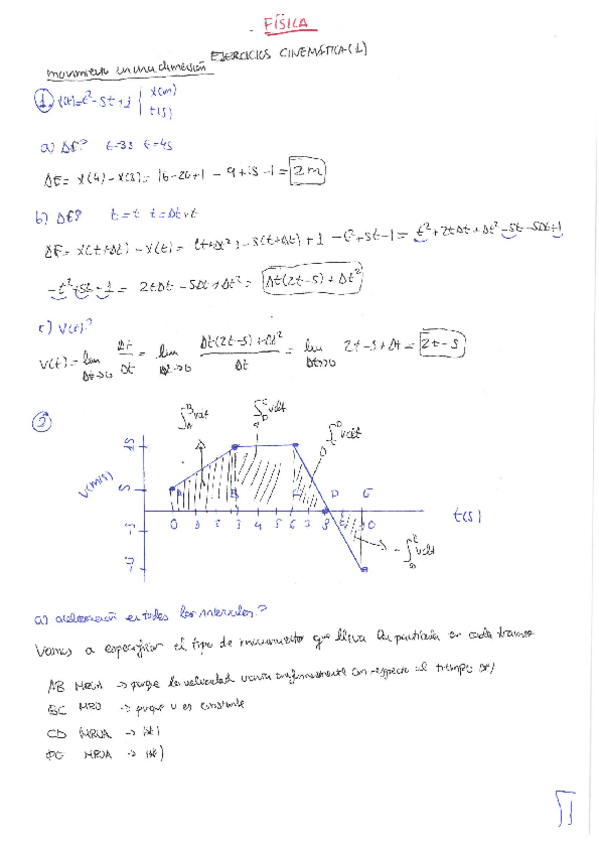 FÍSICA
EJERCICIOS CINEMÁTICA (1)
movimiento en una dimensión
1. x(t)=t²-5t+1 | x(m)
t(s)
a) Δr? t=3s t=4s
Δr = x(4) - x(3) = 16-20+1 - 9+15-1 = 2m
b) Δr? t=t t=Δt+t
Δr = x(t+Δt) - x(t) = (t+Δt)² - 5(t+Δt) + 1 - t²+5t-1 = t²+2tΔt+Δt²-5t-5Δt+1
-t²+5t-1 = 2tΔt-5Δt+Δt² = Δt(2t-5)+Δt²
c) v(t)?
v(t) = lim Δr/Δt = lim Δt(2t-5)+Δt²/Δt = lim 2t-5+Δt = 2t-5
Δt→0 Δt→0 Δt→0
2
∫ᴬᴮ vdt
15
5
v(m/s)
A B D E
0 3 4 5 6 7 8
t(s)
a) aceleración en todos los intervalos?
Vamos a especificar el tipo de movimiento que lleva la partícula en cada tramo
AB MRUA → porque la velocidad varía uniformemente con respecto al tiempo
BC MRU → porque v es constante
CD MRUA →
DE MRUA →